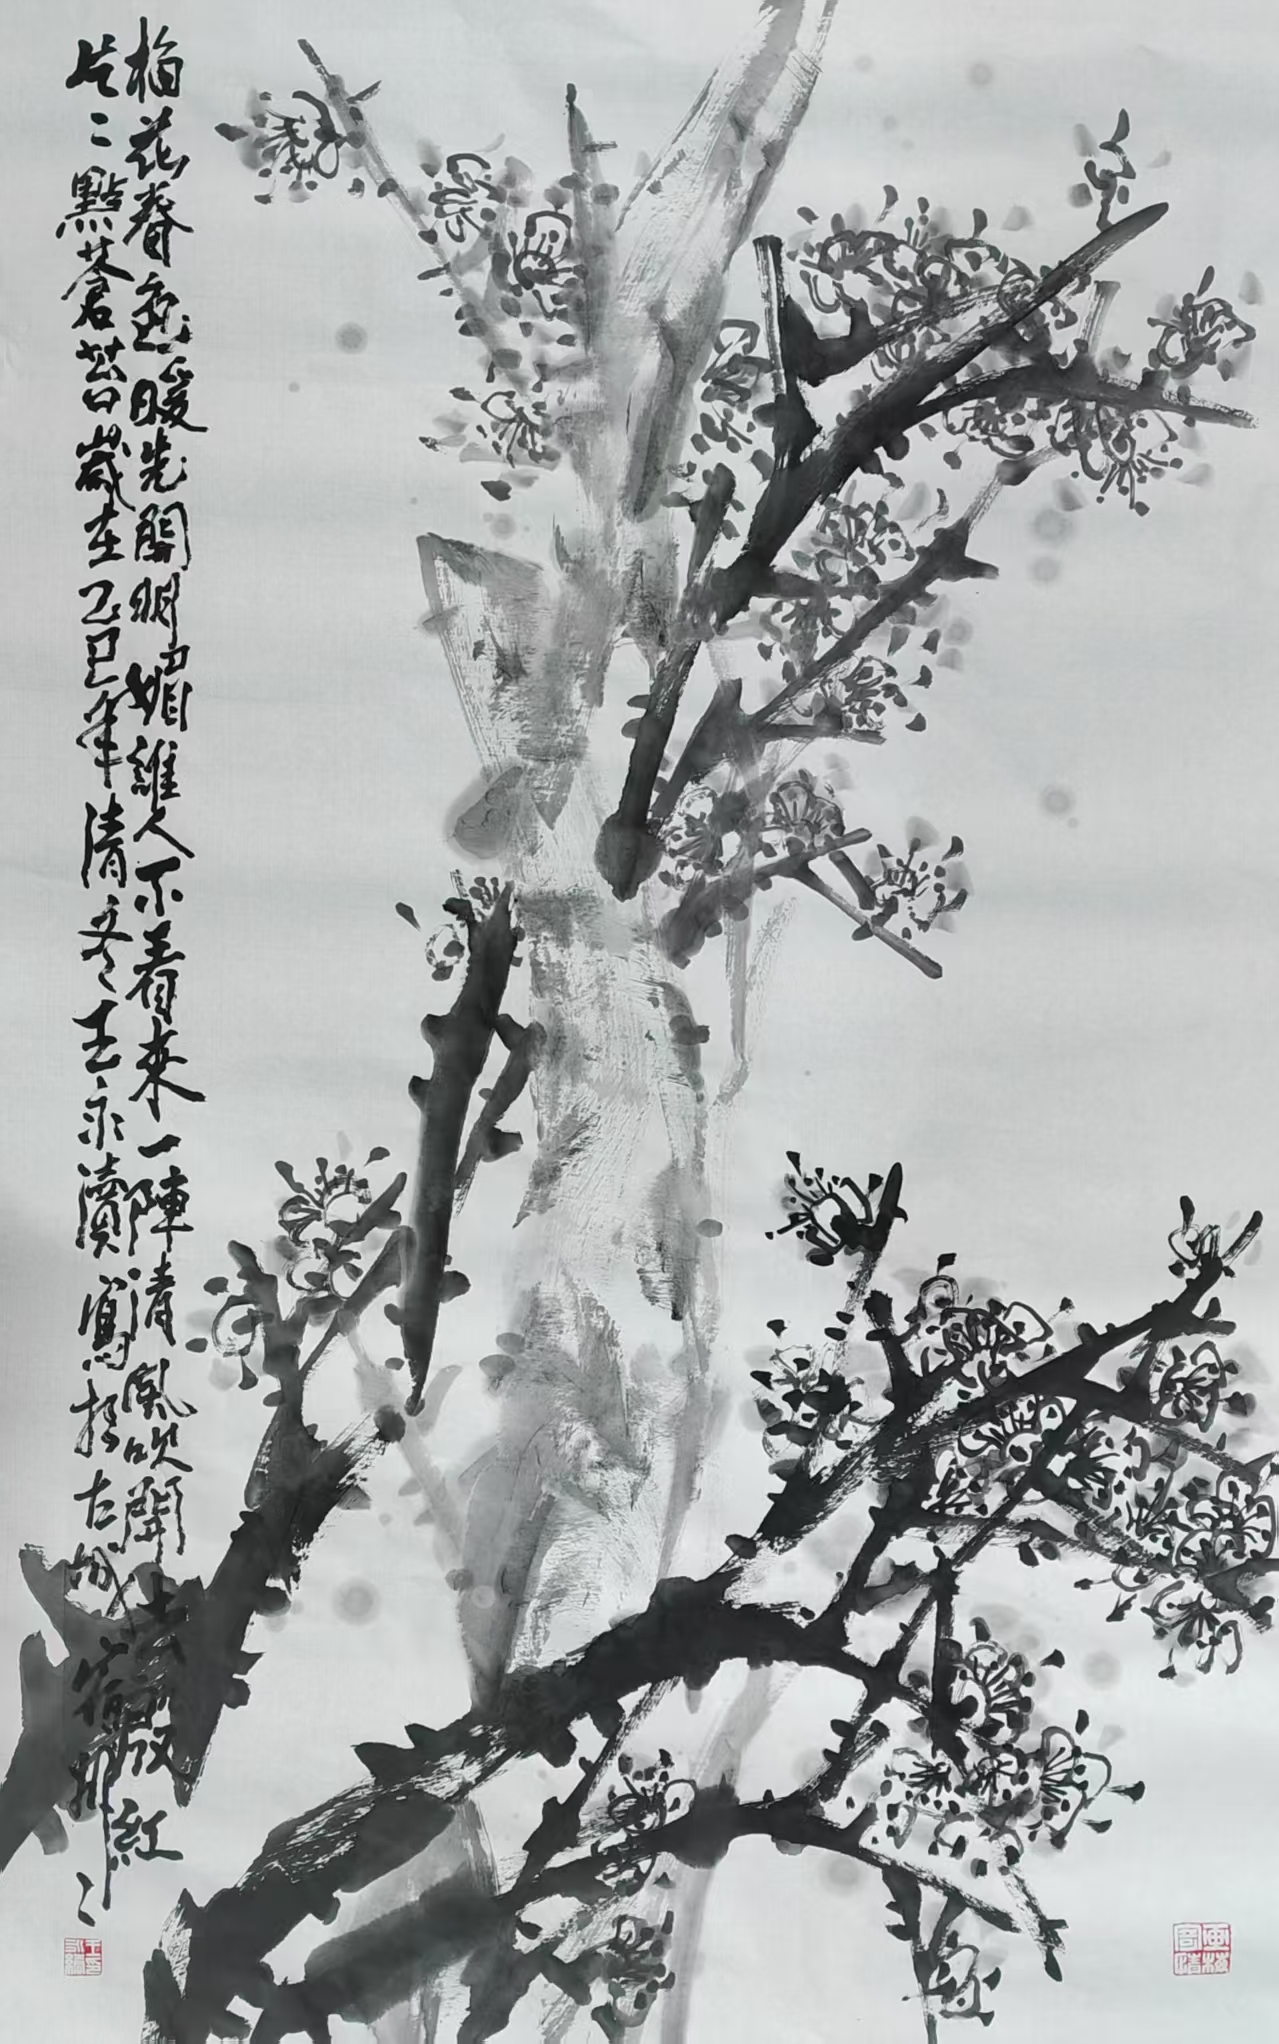 梅花春亦暖先開明媚維人不看來一陣清風吹開去散紅
片二點蒼苔歲在乙巳年清冬王永瀆寫於古城宿州二